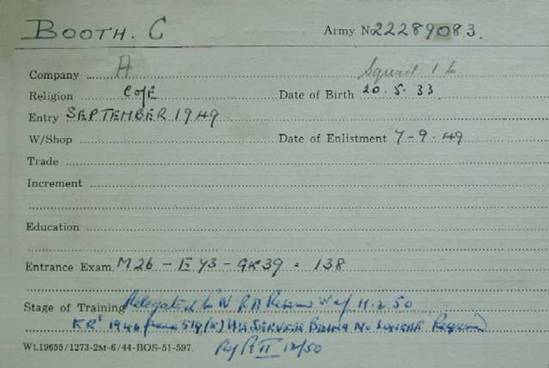 BOOTH. C Army No 22289083.
Company A Squad 1
Religion C of E Date of Birth 20.5.33
Entry SEPTEMBER 1949
W/Shop Date of Enlistment 7-9-49
Trade
Increment
Education
Entrance Exam. M26 - E 73 - GK39 = 138
Stage of Training 11.2.50
KR 1940 SERVICES Being No Longer Required
Pt II 12/50
Wt.19655/1273-2M-6/44-BOS-51-597.